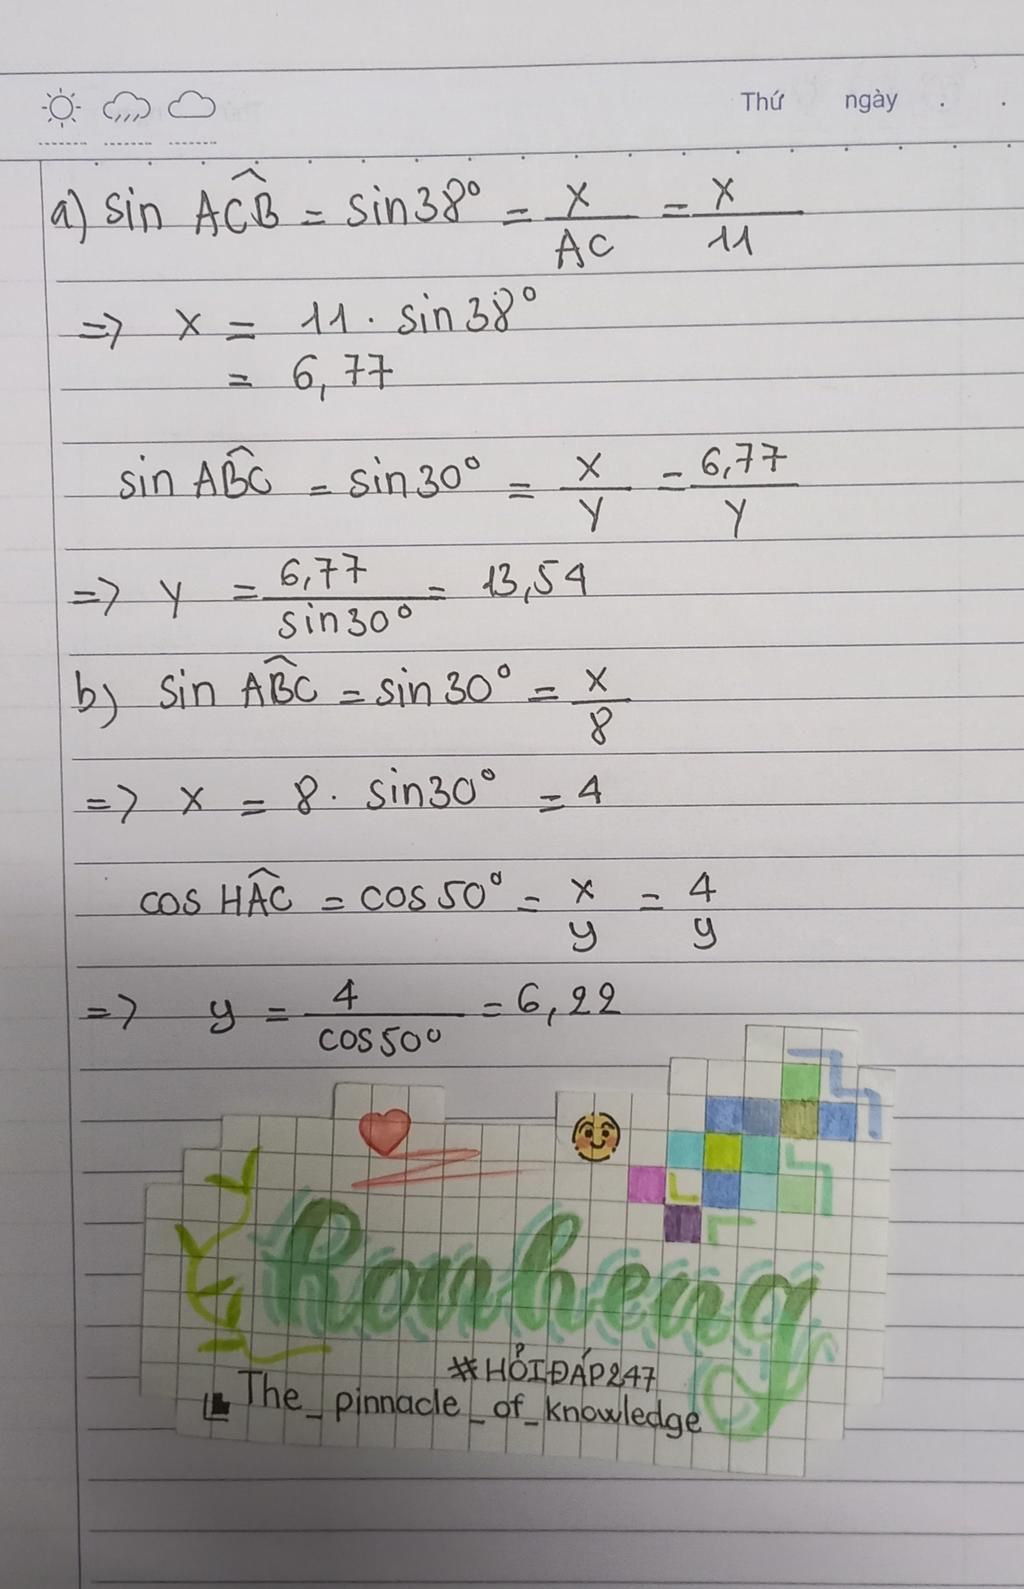 Thứ ngày . .
a) sin AĈB = sin38° = X/AC = X/11
=> X = 11 . sin38°
= 6,77
sin AB̂C = sin30° = X/Y = 6,77/Y
=> Y = 6,77/sin30° = 13,54
b) sin AB̂C = sin30° = X/8
=> X = 8 . sin30° = 4
cos HÂC = cos50° = x/y = 4/y
=> y = 4/cos50° = 6,22
#HỎIĐÁP247
The_pinnacle_of_knowledge